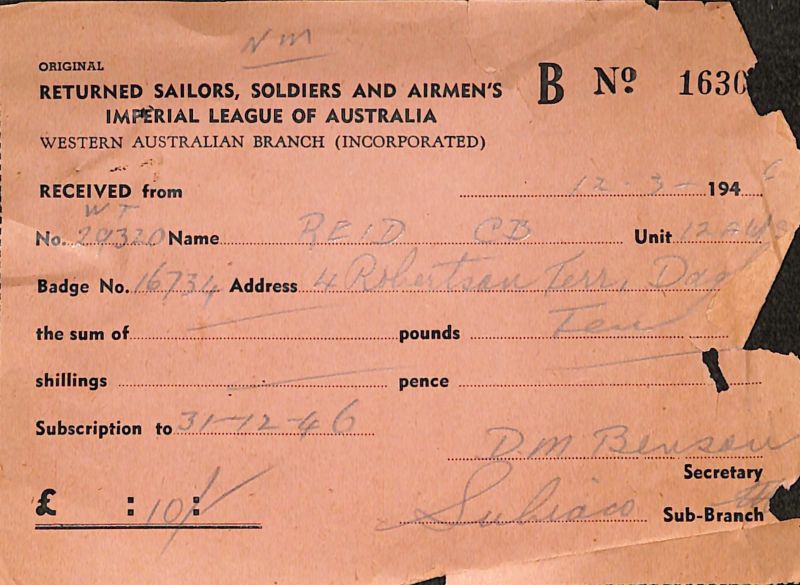 NM
ORIGINAL
RETURNED SAILORS, SOLDIERS AND AIRMEN'S B Nº 1630
IMPERIAL LEAGUE OF AUSTRALIA
WESTERN AUSTRALIAN BRANCH (INCORPORATED)
RECEIVED from 12-3-1946
WX
No. 29320 Name REID CB Unit
Badge No. 16734 Address 4 Robertson Terr, Dag
the sum of pounds Ten
shillings pence
Subscription to 31-12-46
D.M Benson
Secretary
£ : 10/- :
Subiaco Sub-Branch